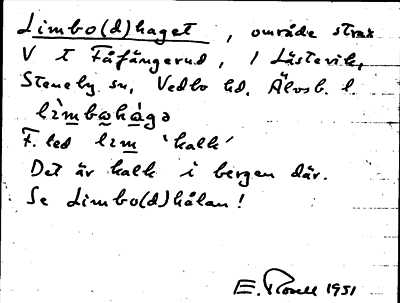 Limbo(d)haget, område strax
V t Fåfängerud, i Lästevik,
Steneby sn, Vedbo hd, Älvsb. l.
lìmbωhàgə
F. led lim 'kalk'
Det är kalk i bergen där.
Se Limbo(d)hålan!
E. 1951